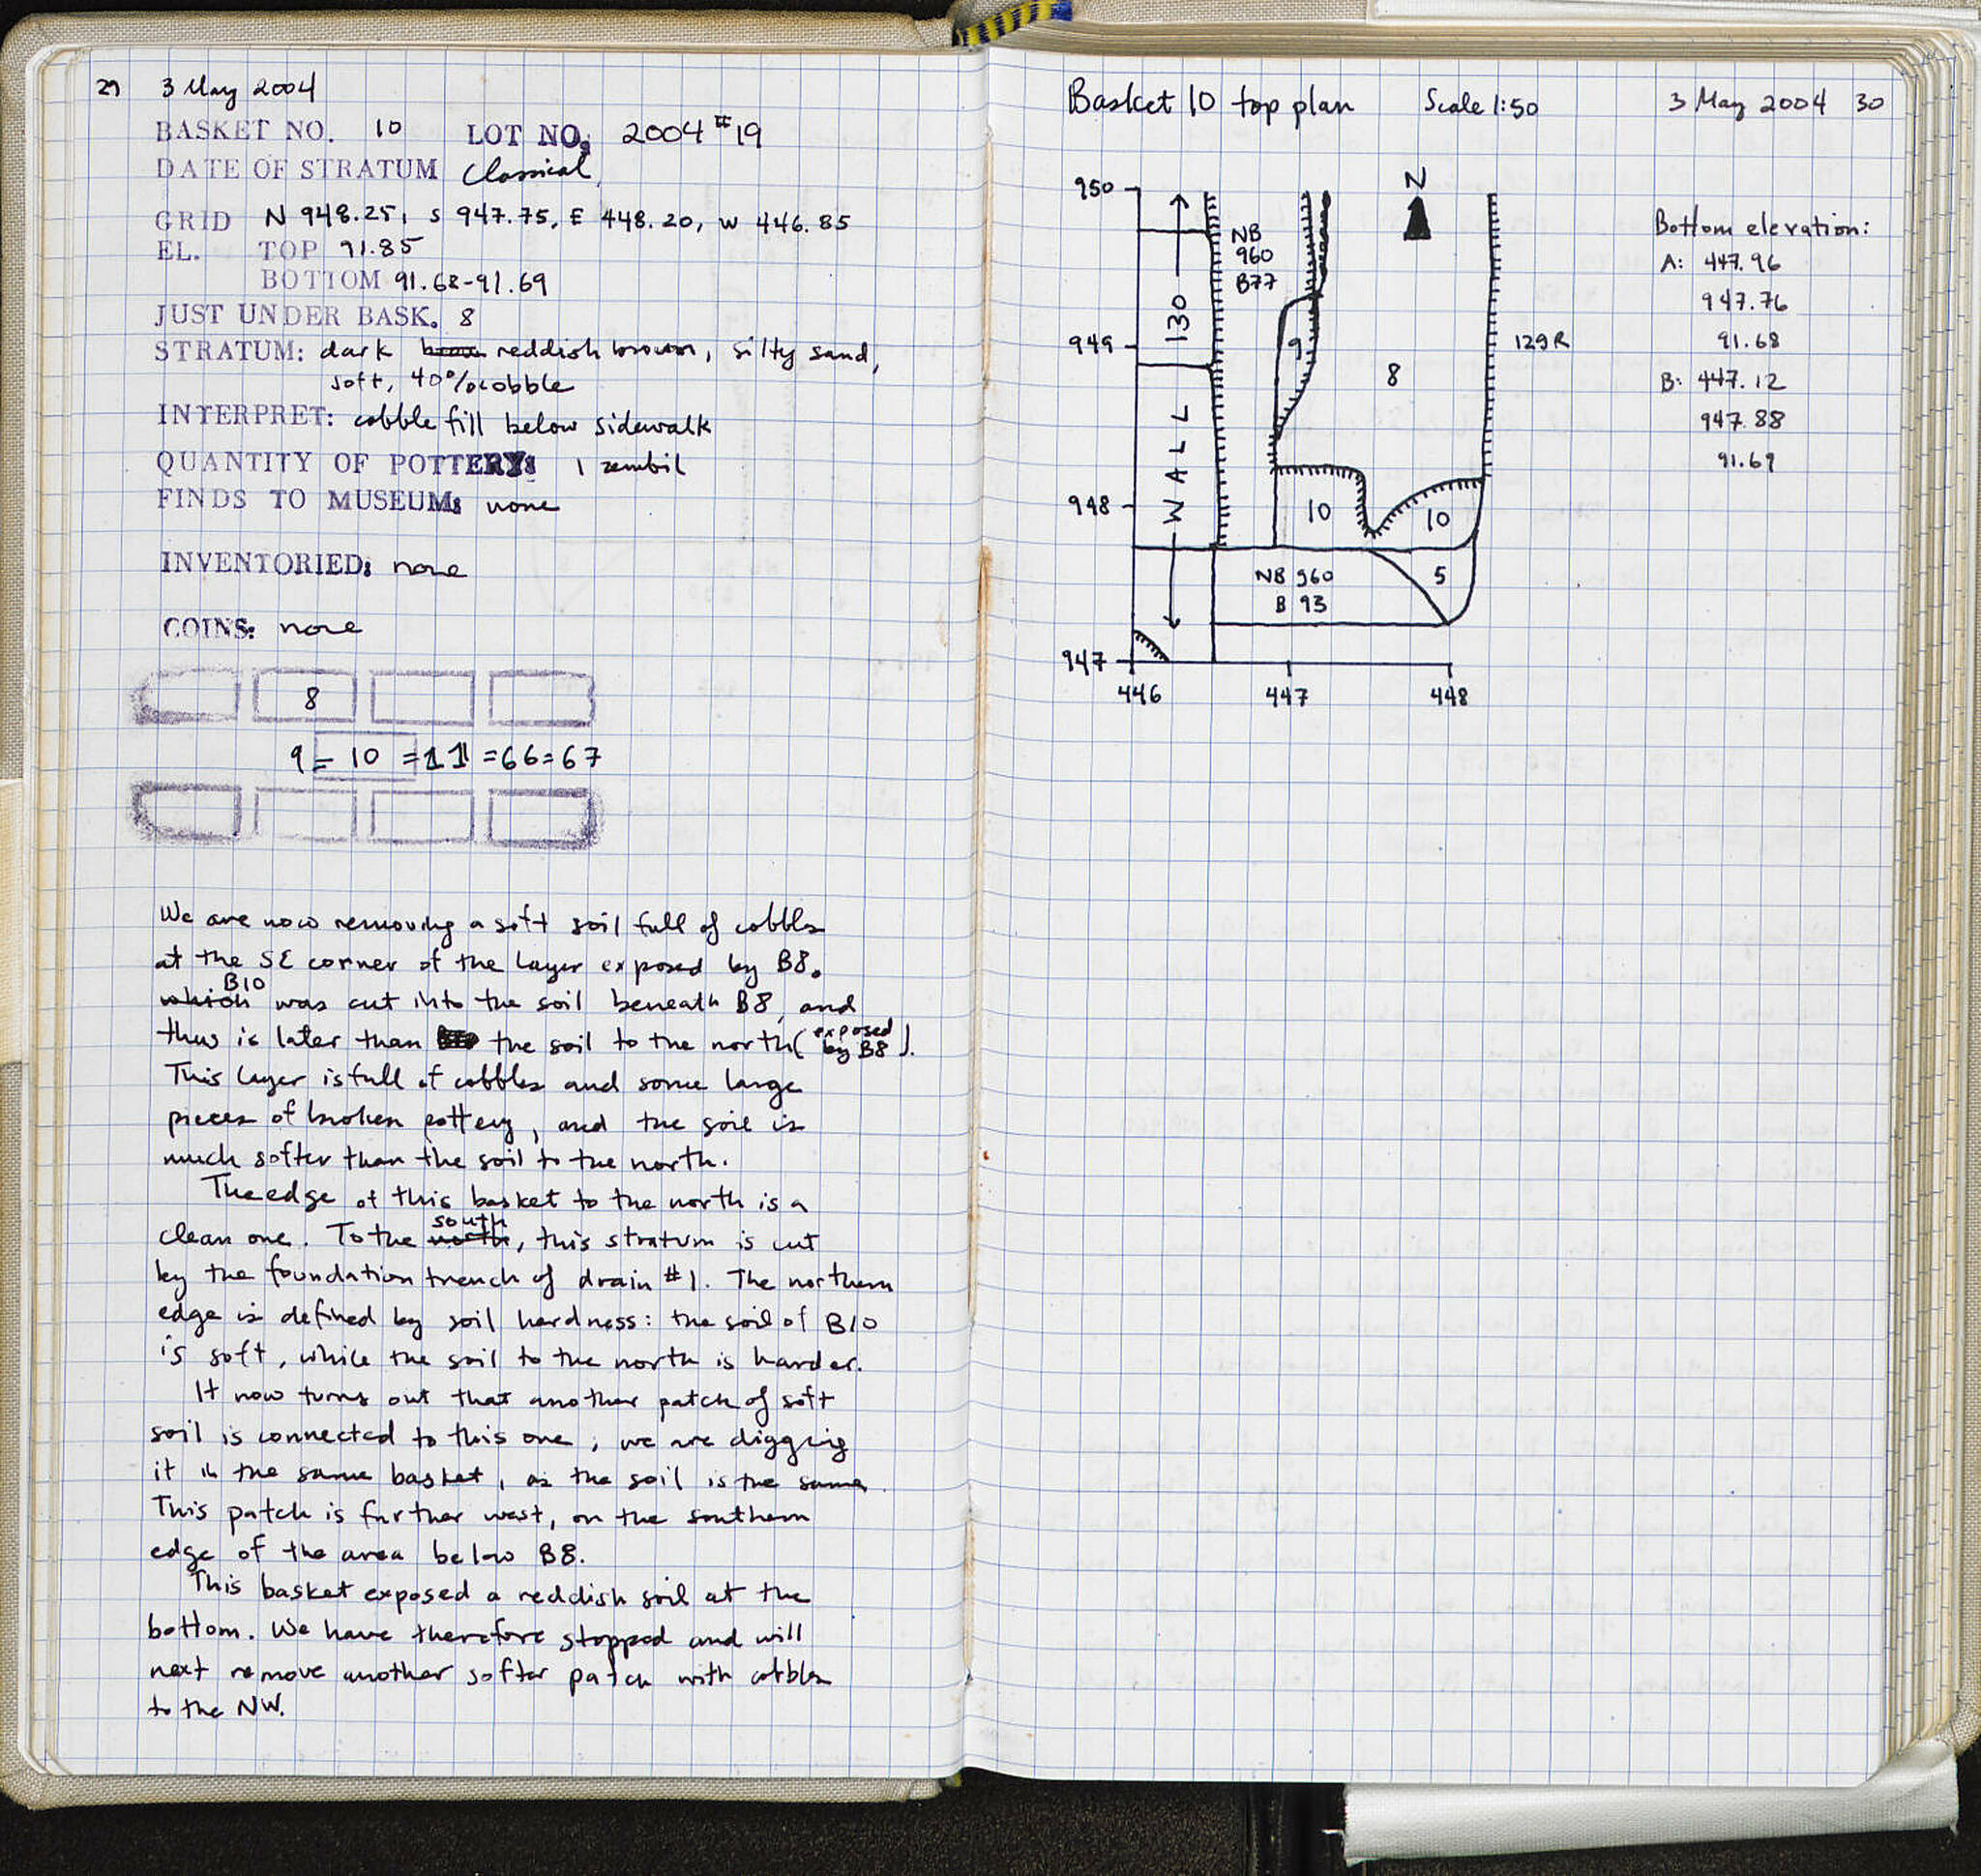 29 3 May 2004
BASKET NO. 10 LOT NO. 2004 #19
DATE OF STRATUM Classical
GRID N 948.25, S 947.75, E 448.20, W 446.85
EL. TOP 91.85
BOTTOM 91.68-91.69
JUST UNDER BASK. 8
STRATUM: dark brown reddish brown, silty sand,
soft, 40% cobble
INTERPRET: cobble fill below sidewalk
QUANTITY OF POTTERY: 1 zembil
FINDS TO MUSEUM: none
INVENTORIED: none
COINS: none
8
9 = 10 = 11 = 66 = 67
We are now removing a soft soil full of cobbles
at the SE corner of the layer exposed by B8.
B10
which was cut into the soil beneath B8, and
thus is later than the soil to the north (exposed by B8).
This layer is full of cobbles and some large
pieces of broken pottery, and the soil is
much softer than the soil to the north.
The edge of this basket to the north is a
south
clean one. To the north, this stratum is cut
by the foundation trench of drain #1. The northern
edge is defined by soil hardness: the soil of B10
is soft, while the soil to the north is harder.
It now turns out that another patch of soft
soil is connected to this one; we are digging
it in the same basket, as the soil is the same.
This patch is further west, on the southern
edge of the area below B8.
This basket exposed a reddish soil at the
bottom. We have therefore stopped and will
next remove another softer patch with cobbles
to the NW.
Basket 10 top plan Scale 1:50 3 May 2004 30
N
950
949
948
947
446 447 448
WALL 130
NB
960
B77
9
8
129R
10
10
NB 960
B 93
5
Bottom elevation:
A: 447.96
947.76
91.68
B: 447.12
947.88
91.69